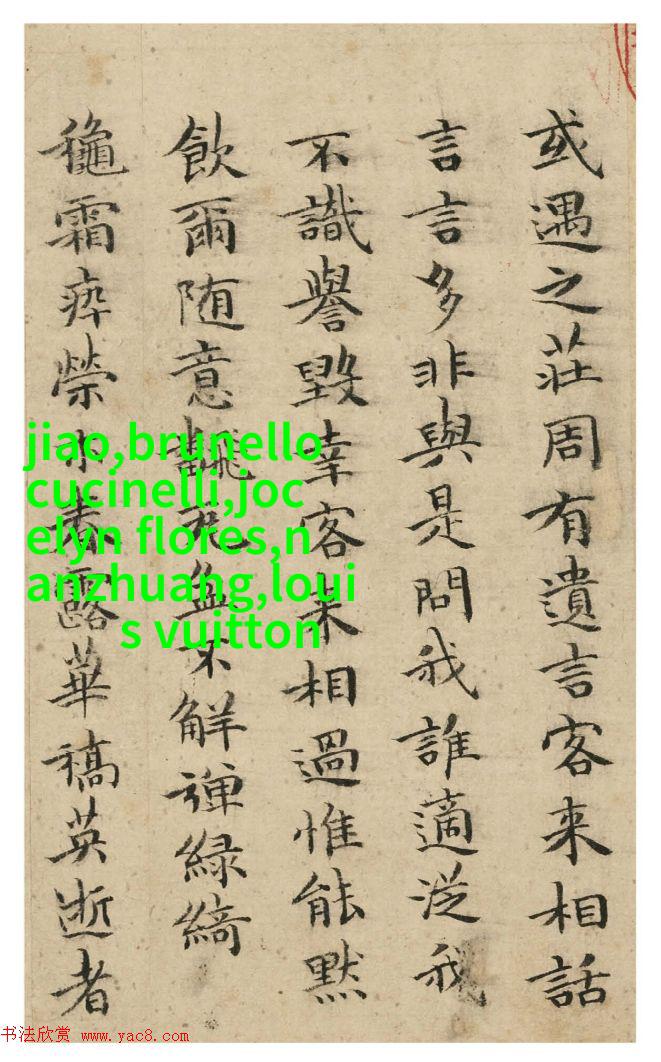 或遇之莊周有遺言客来相話
言言多非與是問我誰適従我
不識譽毀幸客来相過惟能默
飲爾随意不解彈綠綺
龝霜瘁榮木春露華稿英逝者
jiao,brunello
cucinelli,joc
elyn flores,n
anzhuang,loui
s vuitton
书法欣赏 www.yac8.com